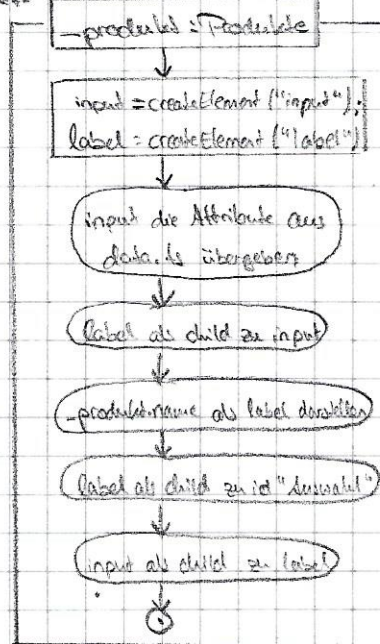 _produkt : Produkte
input = createElement ("input");
label = createElement ("label")
input die Attribute aus
data.ts übergeben
label als child zu input
_produkt.name als label darstellen
label als child zu id "Auswahl"
input als child zu label